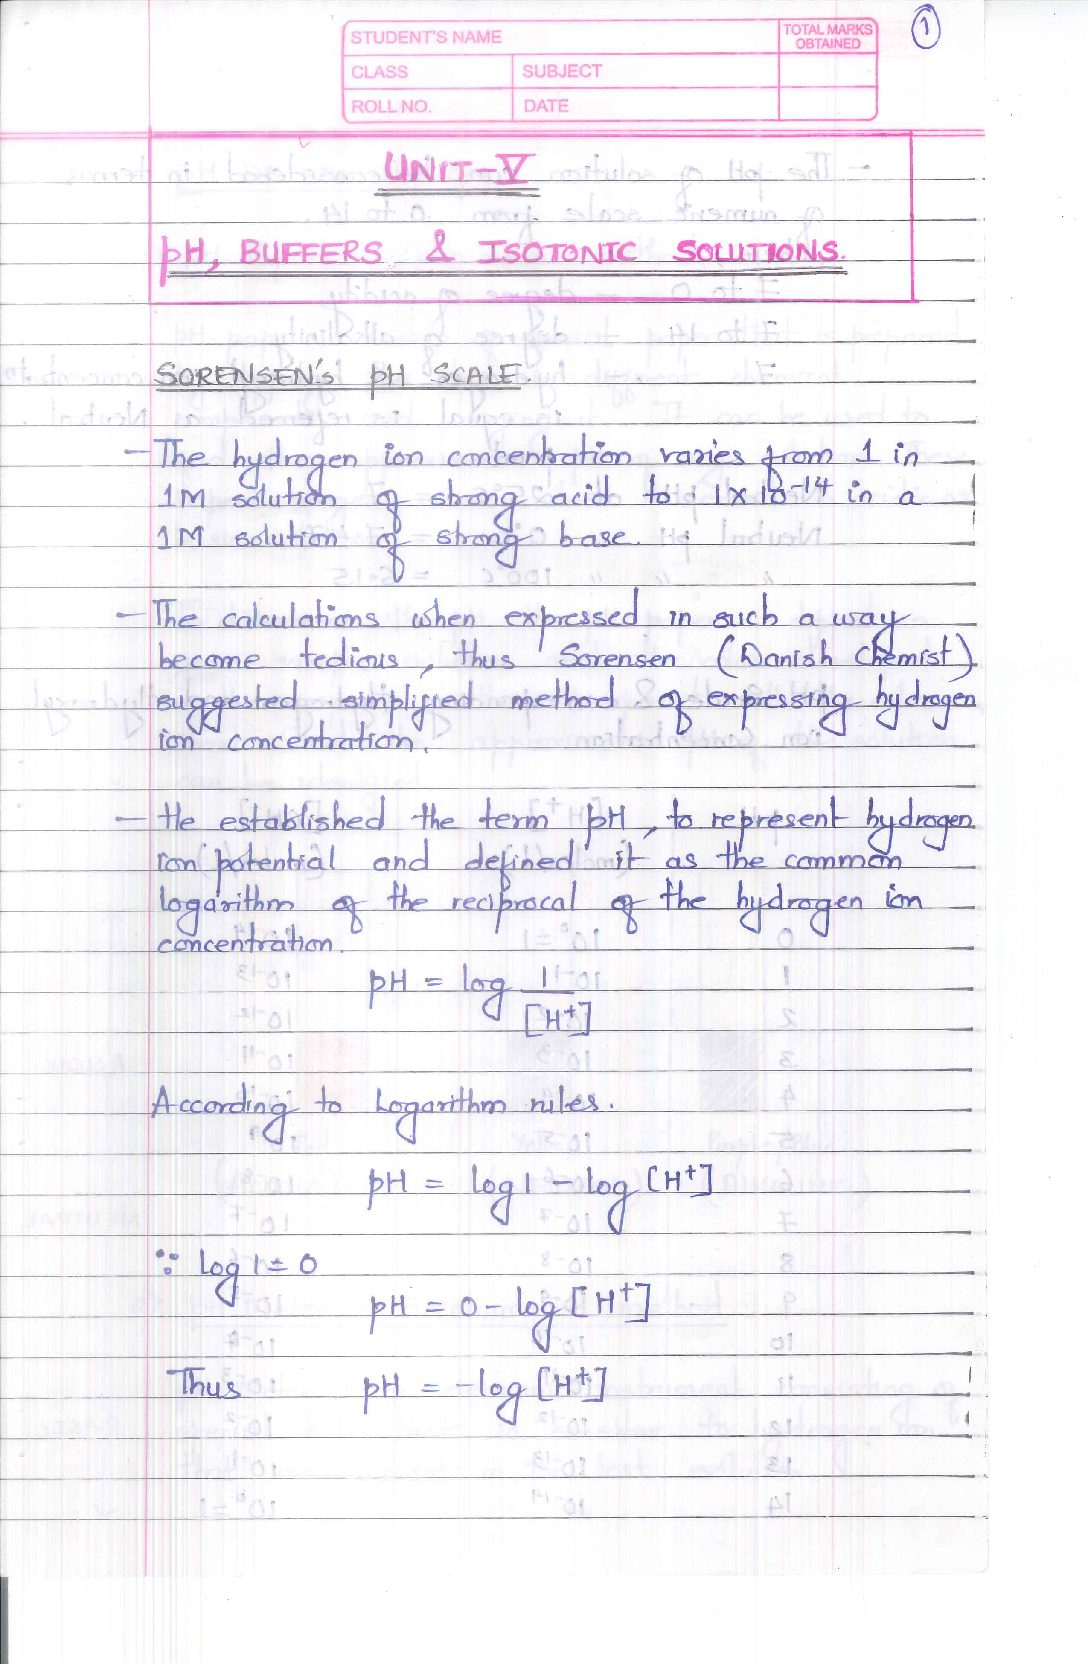 STUDENT'S NAME
TOTAL MARKS OBTAINED
1
CLASS
SUBJECT
ROLL NO.
DATE
UNIT-V
pH, BUFFERS & ISOTONIC SOLUTIONS.
SORENSEN's pH SCALE.
- The hydrogen ion concentration varies from 1 in
1M solution of strong acid to 1 x 10⁻¹⁴ in a
1M solution of strong base.
- The calculations when expressed in such a way
become tedious, thus Sorensen (Danish Chemist)
suggested simplified method of expressing hydrogen
ion concentration.
- He established the term pH, to represent hydrogen
ion potential and defined it as the common
logarithm of the reciprocal of the hydrogen ion
concentration.
pH = log 1/[H⁺]
According to Logarithm rules.
pH = log 1 - log [H⁺]
∵ log 1 = 0
pH = 0 - log [H⁺]
Thus pH = -log [H⁺]